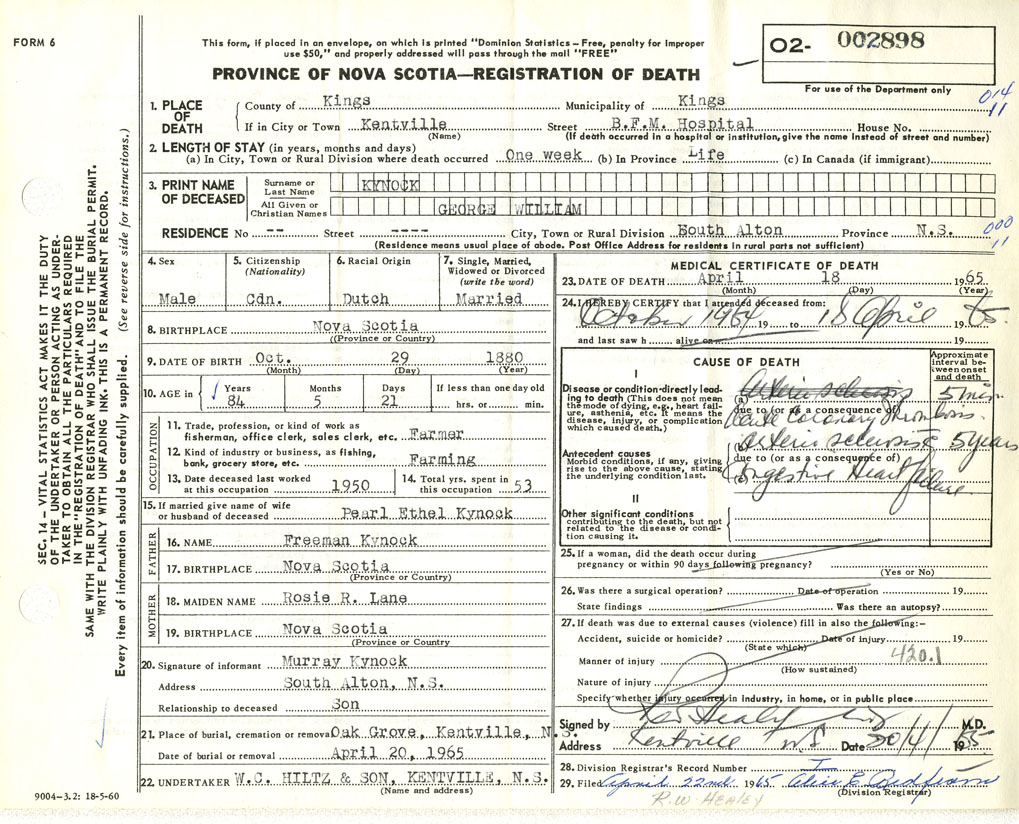 FORM 6
This form, if placed in an envelope, on which is printed "Dominion Statistics – Free, penalty for improper
use $50," and properly addressed will pass through the mail "FREE"
PROVINCE OF NOVA SCOTIA—REGISTRATION OF DEATH
O2- 002898
For use of the Department only
014
11
1. PLACE OF DEATH
County of Kings Municipality of Kings
If in City or Town Kentville Street B.F.M. Hospital House No.
(Name) (If death occurred in a hospital or institution, give the name instead of street and number)
2. LENGTH OF STAY (in years, months and days)
(a) In City, Town or Rural Division where death occurred One week (b) In Province Life (c) In Canada (if immigrant)
3. PRINT NAME OF DECEASED
Surname or Last Name KYNOCK
All Given or Christian Names GEORGE WILLIAM
RESIDENCE No -- Street ---- City, Town or Rural Division South Alton Province N.S.
000
11
(Residence means usual place of abode. Post Office Address for residents in rural parts not sufficient)
4. Sex Male
5. Citizenship (Nationality) Cdn.
6. Racial Origin Dutch
7. Single, Married, Widowed or Divorced (write the word) Married
8. BIRTHPLACE Nova Scotia
((Province or Country)
9. DATE OF BIRTH Oct. 29 1880
(Month) (Day) (Year)
10. AGE in Years 84 Months 5 Days 21 If less than one day old hrs. or min.
OCCUPATION
11. Trade, profession, or kind of work as
fisherman, office clerk, sales clerk, etc. Farmer
12. Kind of industry or business, as fishing,
bank, grocery store, etc. Farming
13. Date deceased last worked
at this occupation 1950
14. Total yrs. spent in
this occupation 53
15. If married give name of wife
or husband of deceased Pearl Ethel Kynock
FATHER
16. NAME Freeman Kynock
17. BIRTHPLACE Nova Scotia
(Province or Country)
MOTHER
18. MAIDEN NAME Rosie R. Lane
19. BIRTHPLACE Nova Scotia
(Province or Country
20. Signature of informant Murray Kynock
Address South Alton, N.S.
Relationship to deceased Son
21. Place of burial, cremation or removal Oak Grove, Kentville, N.S.
Date of burial or removal April 20, 1965
22. UNDERTAKER W.C. HILTZ & SON, KENTVILLE, N.S.
(Name and address)
9004-3.2: 18-5-60
MEDICAL CERTIFICATE OF DEATH
23. DATE OF DEATH April 18 1965
(Month) (Day) (Year)
24. I HEREBY CERTIFY that I attended deceased from:
October 1964 19 to 18 April 1965
and last saw h alive on 19
CAUSE OF DEATH
Approximate interval between onset and death
I
Disease or condition directly leading to death (This does not mean the mode of dying, e.g., heart failure, asthenia, etc. It means the disease, injury, or complication which caused death.)
(a) 5 min
due to (or as a consequence of)
Acute Coronary Thrombosis
(b) Arterio sclerosis 5 years
Antecedent causes
Morbid conditions, if any, giving rise to the above cause, stating the underlying condition last.
due to (or as a consequence of)
(c) Heart failure
II
Other significant conditions
contributing to the death, but not related to the disease or condition causing it.
25. If a woman, did the death occur during
pregnancy or within 90 days following pregnancy?
(Yes or No)
26. Was there a surgical operation? Date of operation 19
State findings Was there an autopsy?
27. If death was due to external causes (violence) fill in also the following:–
Accident, suicide or homicide? Date of injury 19
(State which)
420.1
Manner of injury
(How sustained)
Nature of injury
Specify whether injury occurred in industry, in home, or in public place
Signed by Healey M.D.
Address Kentville N S Date 20/4/ 1965
28. Division Registrar's Record Number
29. Filed April 22nd 1965 Alice E
(Division Registrar)
R.W HEALEY
SEC. 14 – VITAL STATISTICS ACT MAKES IT THE DUTY
OF THE UNDERTAKER OR PERSON ACTING AS UNDER-
TAKER TO OBTAIN ALL THE PARTICULARS REQUIRED
IN THE "REGISTRATION OF DEATH" AND TO FILE THE
SAME WITH THE DIVISION REGISTRAR WHO SHALL ISSUE THE BURIAL PERMIT.
WRITE PLAINLY WITH UNFADING INK. THIS IS A PERMANENT RECORD.
Every item of information should be carefully supplied. (See reverse side for instructions.)